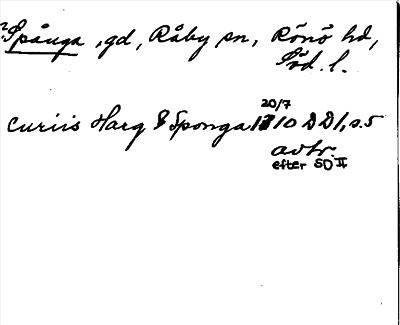 Spånga, gd, Råby sn, Rönö hd,
Söd. l.
20/7
curiis Harg & Sponga 1310 DD 1, s. 5
avtr.
efter SD II